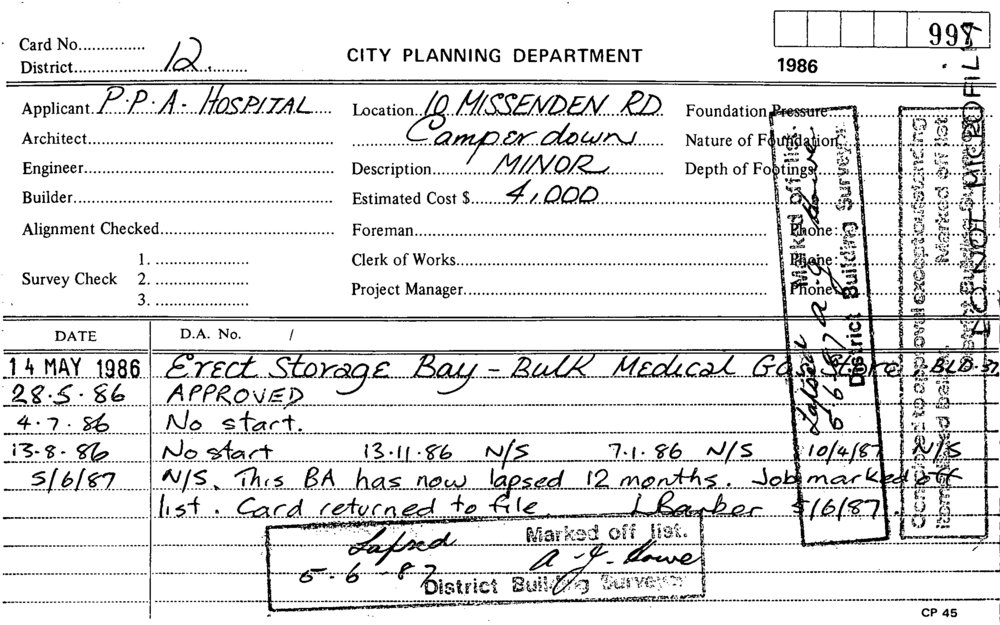 Card No...............
997
District 12.
CITY PLANNING DEPARTMENT
1986
Applicant P.P.A. HOSPITAL
Location 10 MISSENDEN RD
Foundation Pressure
Architect
Camperdown
Nature of Foundation
Engineer
Description MINOR
Depth of Footings
Builder
Estimated Cost $ 4,000
Alignment Checked
Foreman
Phone:
Survey Check
1.
2.
3.
Clerk of Works
Phone:
Project Manager
Phone
DATE D.A. No. /
14 MAY 1986 Erect Storage Bay - Bulk Medical Gas Store - BLD.
28.5.86 APPROVED
4.7.86 No start.
13-8-86 No start 13.11.86 N/S 7.1.86 N/S 10/4/87 N/S
5/6/87 N/S. This BA has now lapsed 12 months. Job marked off
list. Card returned to file L Barber 5/6/87.
Lapsed Marked off list.
5-6-87 A-J. Howe
District Building Surveyor
Marked off list.
Lapsed A-J Howe
5-6-87 District Building Surveyor
to approval except outstanding
Marked off list
District Building Surveyor
DO NOT MICROFILM
CP 45